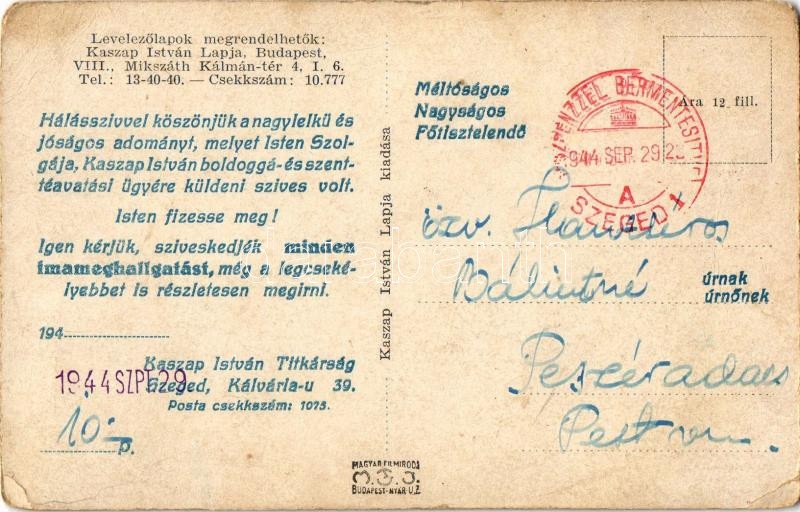 Levelezőlapok megrendelhetők:
Kaszap István Lapja, Budapest,
VIII., Mikszáth Kálmán-tér 4, I. 6.
Tel.: 13-40-40. — Csekkszám: 10.777
Hálásszivvel köszönjük a nagylelkü és
jóságos adományt, melyet Isten Szol-
gája, Kaszap István boldoggá- és szent-
téavatási ügyére küldeni szives volt.
Isten fizesse meg!
Igen kérjük, sziveskedjék minden
imameghallgatást, még a legcseké-
lyebbet is részletesen megirni.
194
Kaszap István Titkárság
1944 SZPT 29
Szeged, Kálvária-u 39.
Posta csekkszám: 1075.
10.- p.
Kaszap István Lapja kiadása
MAGYAR FILMIRODA
BUDAPEST-NYÁR-U.7.
Méltóságos
Nagyságos
Főtisztelendő
KÉSZPÉNZZEL BÉRMENTESITVE
944 SEP. 29 2
A
SZEGED 1
Ára 12 fill.
özv.
Bálintné
úrnak
úrnőnek
Peszéradacs
Pest vm.